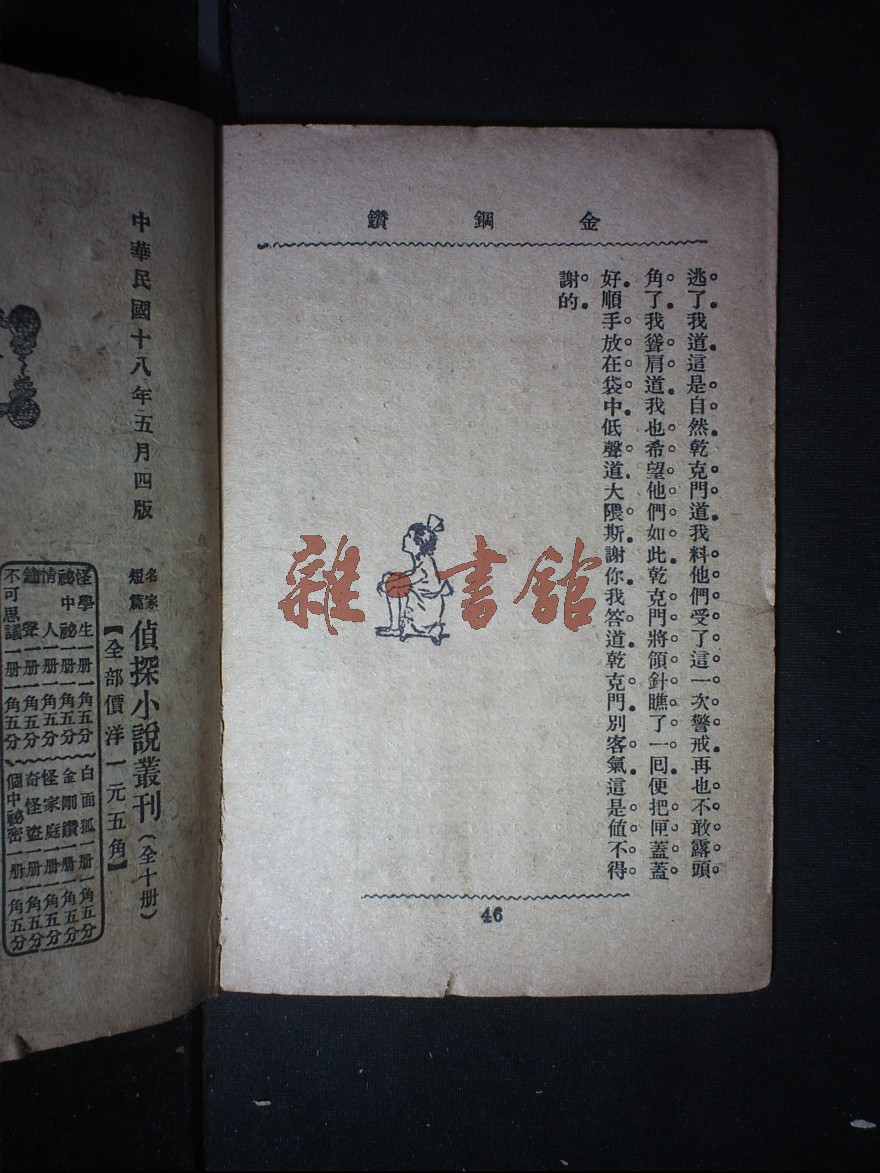 金鋼鑽
逃了我道這是自然乾克門道我料他們受了這一次警戒再也不敢露頭
角了我聳肩道我也希望他們如此乾克門將領針瞧了一囘便把匣蓋蓋
好順手放在袋中低聲道大隈斯謝你我答道乾克門別客氣這是値不得
謝的
46
雜書館
中華民國十八年五月四版
名家短篇偵探小說叢刊(全十册)
【全部價洋一元五角】
怪學生一册一角五分
祕中祕一册一角五分
情人一册一角五分
鐘聲一册一角五分
不可思議一册一角五分
白面狐一册一角五分
金剛鑽一册一角五分
怪家庭一册一角五分
奇怪盜一册一角五分
個中祕密一册一角五分